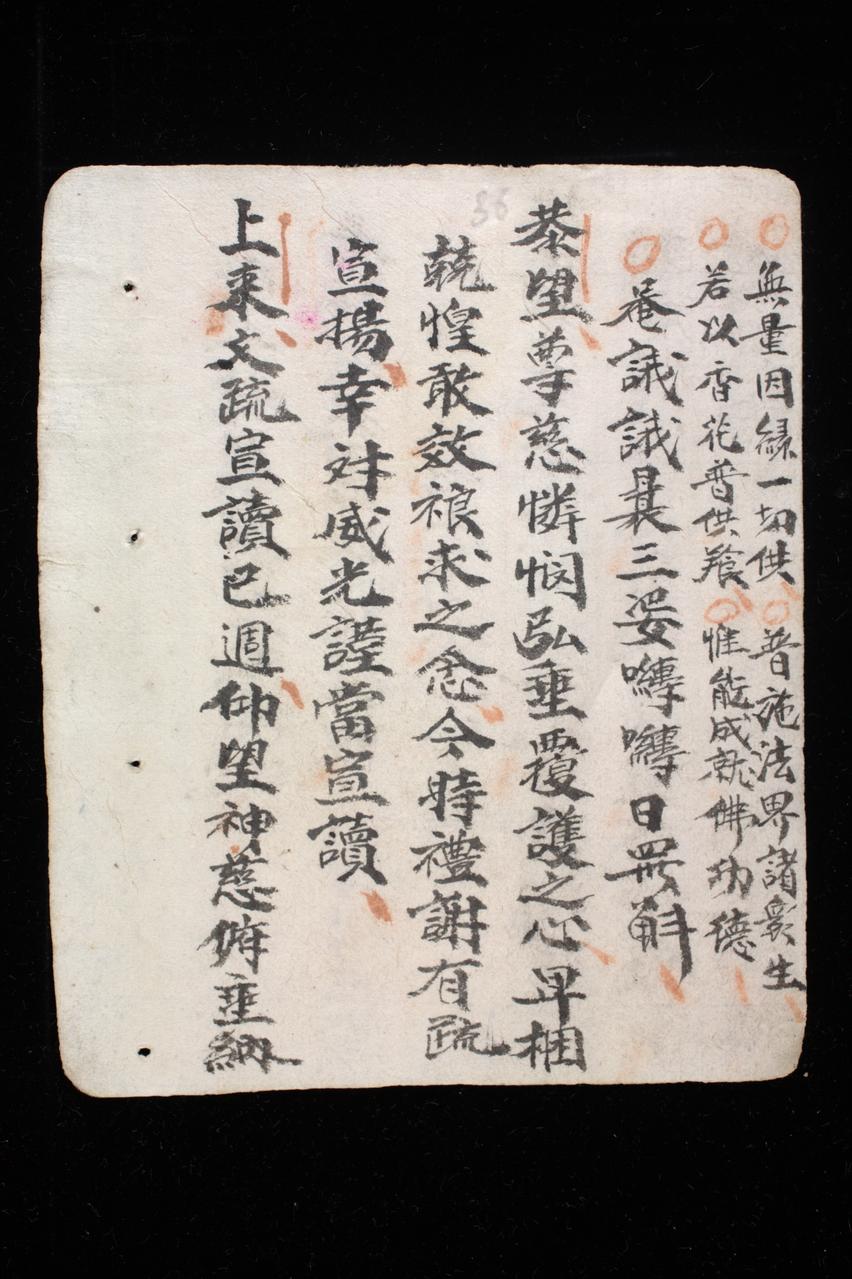 無量因緣一切供普施法界諸衆生
若以香花普供養惟能成就佛功德
菴誐誐曩三婆嚩嚩日斛
恭望尊慈憐憫弘垂覆護之心早
兢惶敢效求之念今時禮謝有疏
宣揚幸対威光謹當宣讀
上來文疏宣讀已週仰望神慈俯垂納
36